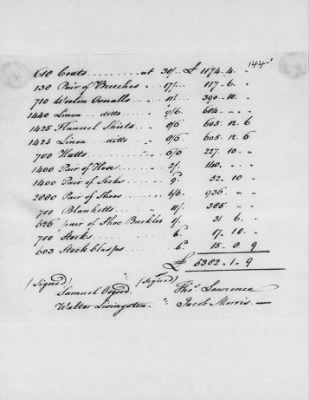 144
610 Coats at 30/. £ 1174.4.
130 Pair of Breeches 17/. 117.6.
710 Woolen Overalls 11/. 390.10.
1440 Linen ditto
1425 Flannel Shirts 8/6 605.12.6
1425 Linen ditto 8/6 605.12.6
700 Hatts 6/6 227.10.
1400 Pair of Hose 2/. 140.
1400 Pair of Socks 9d 52.10.
2000 Pair of Shoes 936.
700 Blanketts 385.
626 pair of Shoe Buckles 1/. 31.6.
700 Stocks 6d 17.10.
603 Stock Clasps 6d 15.0.9
£ 5302.1.9
(Signed) (Signed)
Samuel Osgood Thos. Lawrence
Walter Livingston Jacob Morris